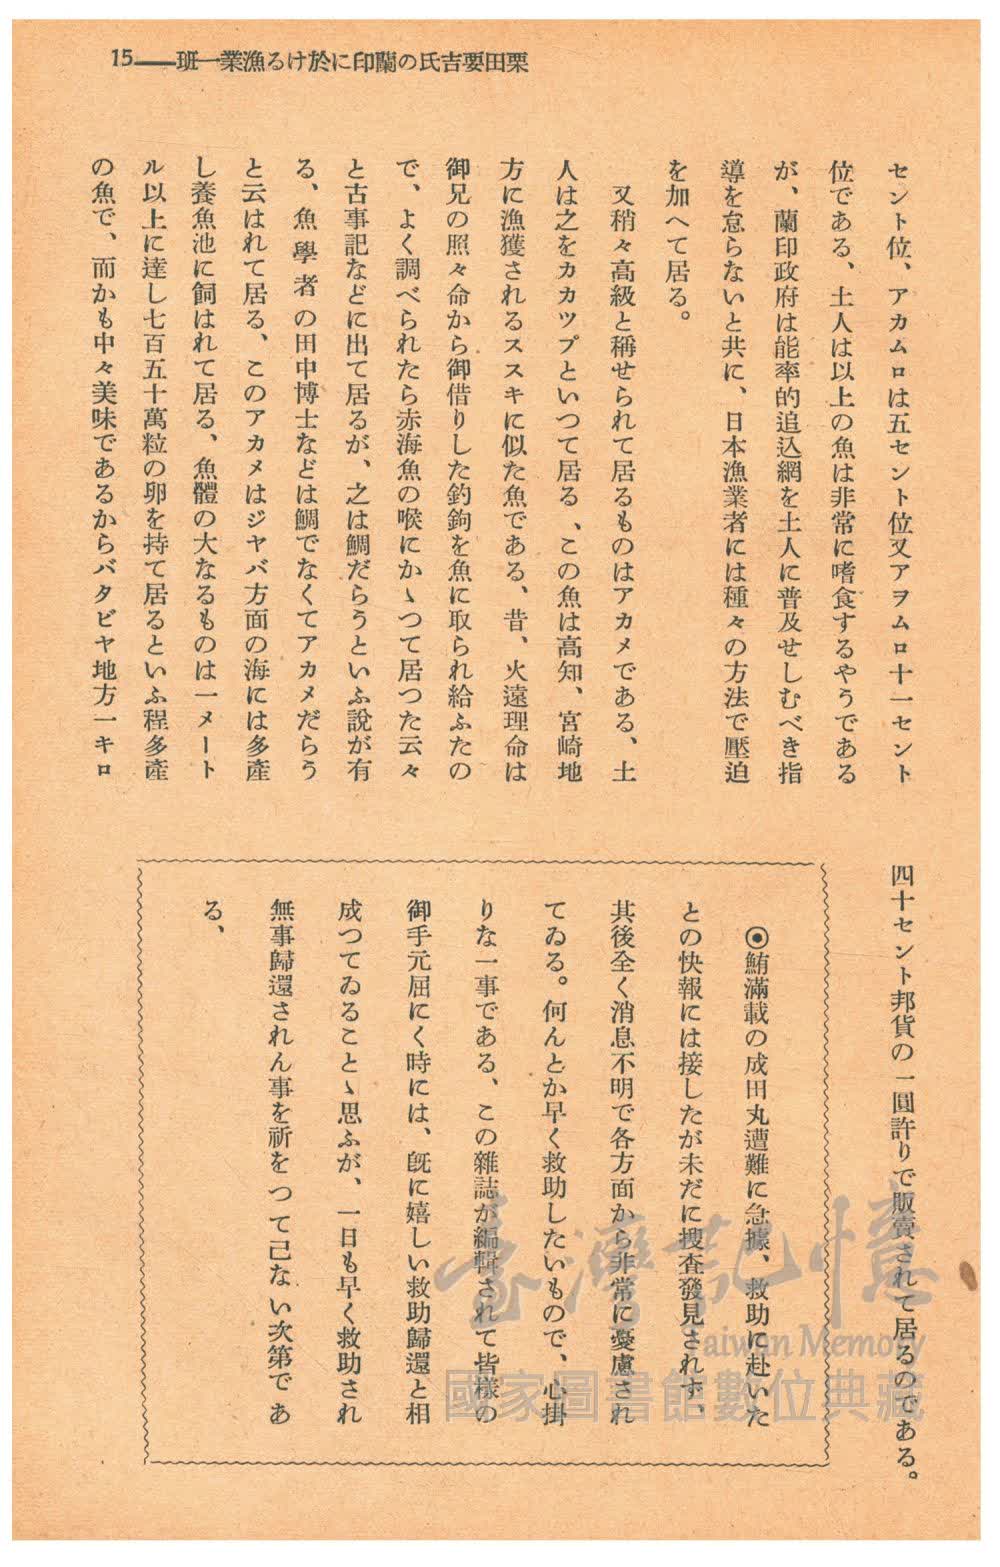 15——班一業漁るけ於に印蘭の氏吉要田栗
セント位、アカムロは五セント位又アヲムロ十一セント
位である、土人は以上の魚は非常に嗜食するやうである
が、蘭印政府は能率的追込網を土人に普及せしむべき指
導を怠らないと共に、日本漁業者には種々の方法で壓迫
を加へて居る。
又稍々高級と稱せられて居るものはアカメである、土
人は之をカカツプといつて居る、この魚は高知、宮崎地
方に漁獲されるススキに似た魚である、昔、火遠理命は
御兄の照々命から御借りした釣鉤を魚に取られ給ふたの
で、よく調べられたら赤海魚の喉にかゝつて居つた云々
と古事記などに出て居るが、之は鯛だらうといふ說が有
る、魚學者の田中博士などは鯛でなくてアカメだらう
と云はれて居る、このアカメはジヤバ方面の海には多產
し養魚池に飼はれて居る、魚體の大なるものは一メート
ル以上に達し七百五十萬粒の卵を持て居るといふ程多產
の魚で、而かも中々美味であるからバタビヤ地方一キロ
四十セント邦貨の一圓許りで販賣されて居るのである。
◉鮪滿載の成田丸遭難に急據、救助に赴いた
との快報には接したが未だに搜査發見されず、
其後全く消息不明で各方面から非常に憂慮され
てゐる。何んとか早く救助したいもので、心掛
りな一事である、この雜誌が編輯されて皆樣の
御手元屆にく時には、旣に嬉しい救助歸還と相
成つてゐることゝ思ふが、一日も早く救助され
無事歸還されん事を祈をつて己ない次第であ
る、
臺灣記憶
Taiwan Memory
國家圖書館數位典藏